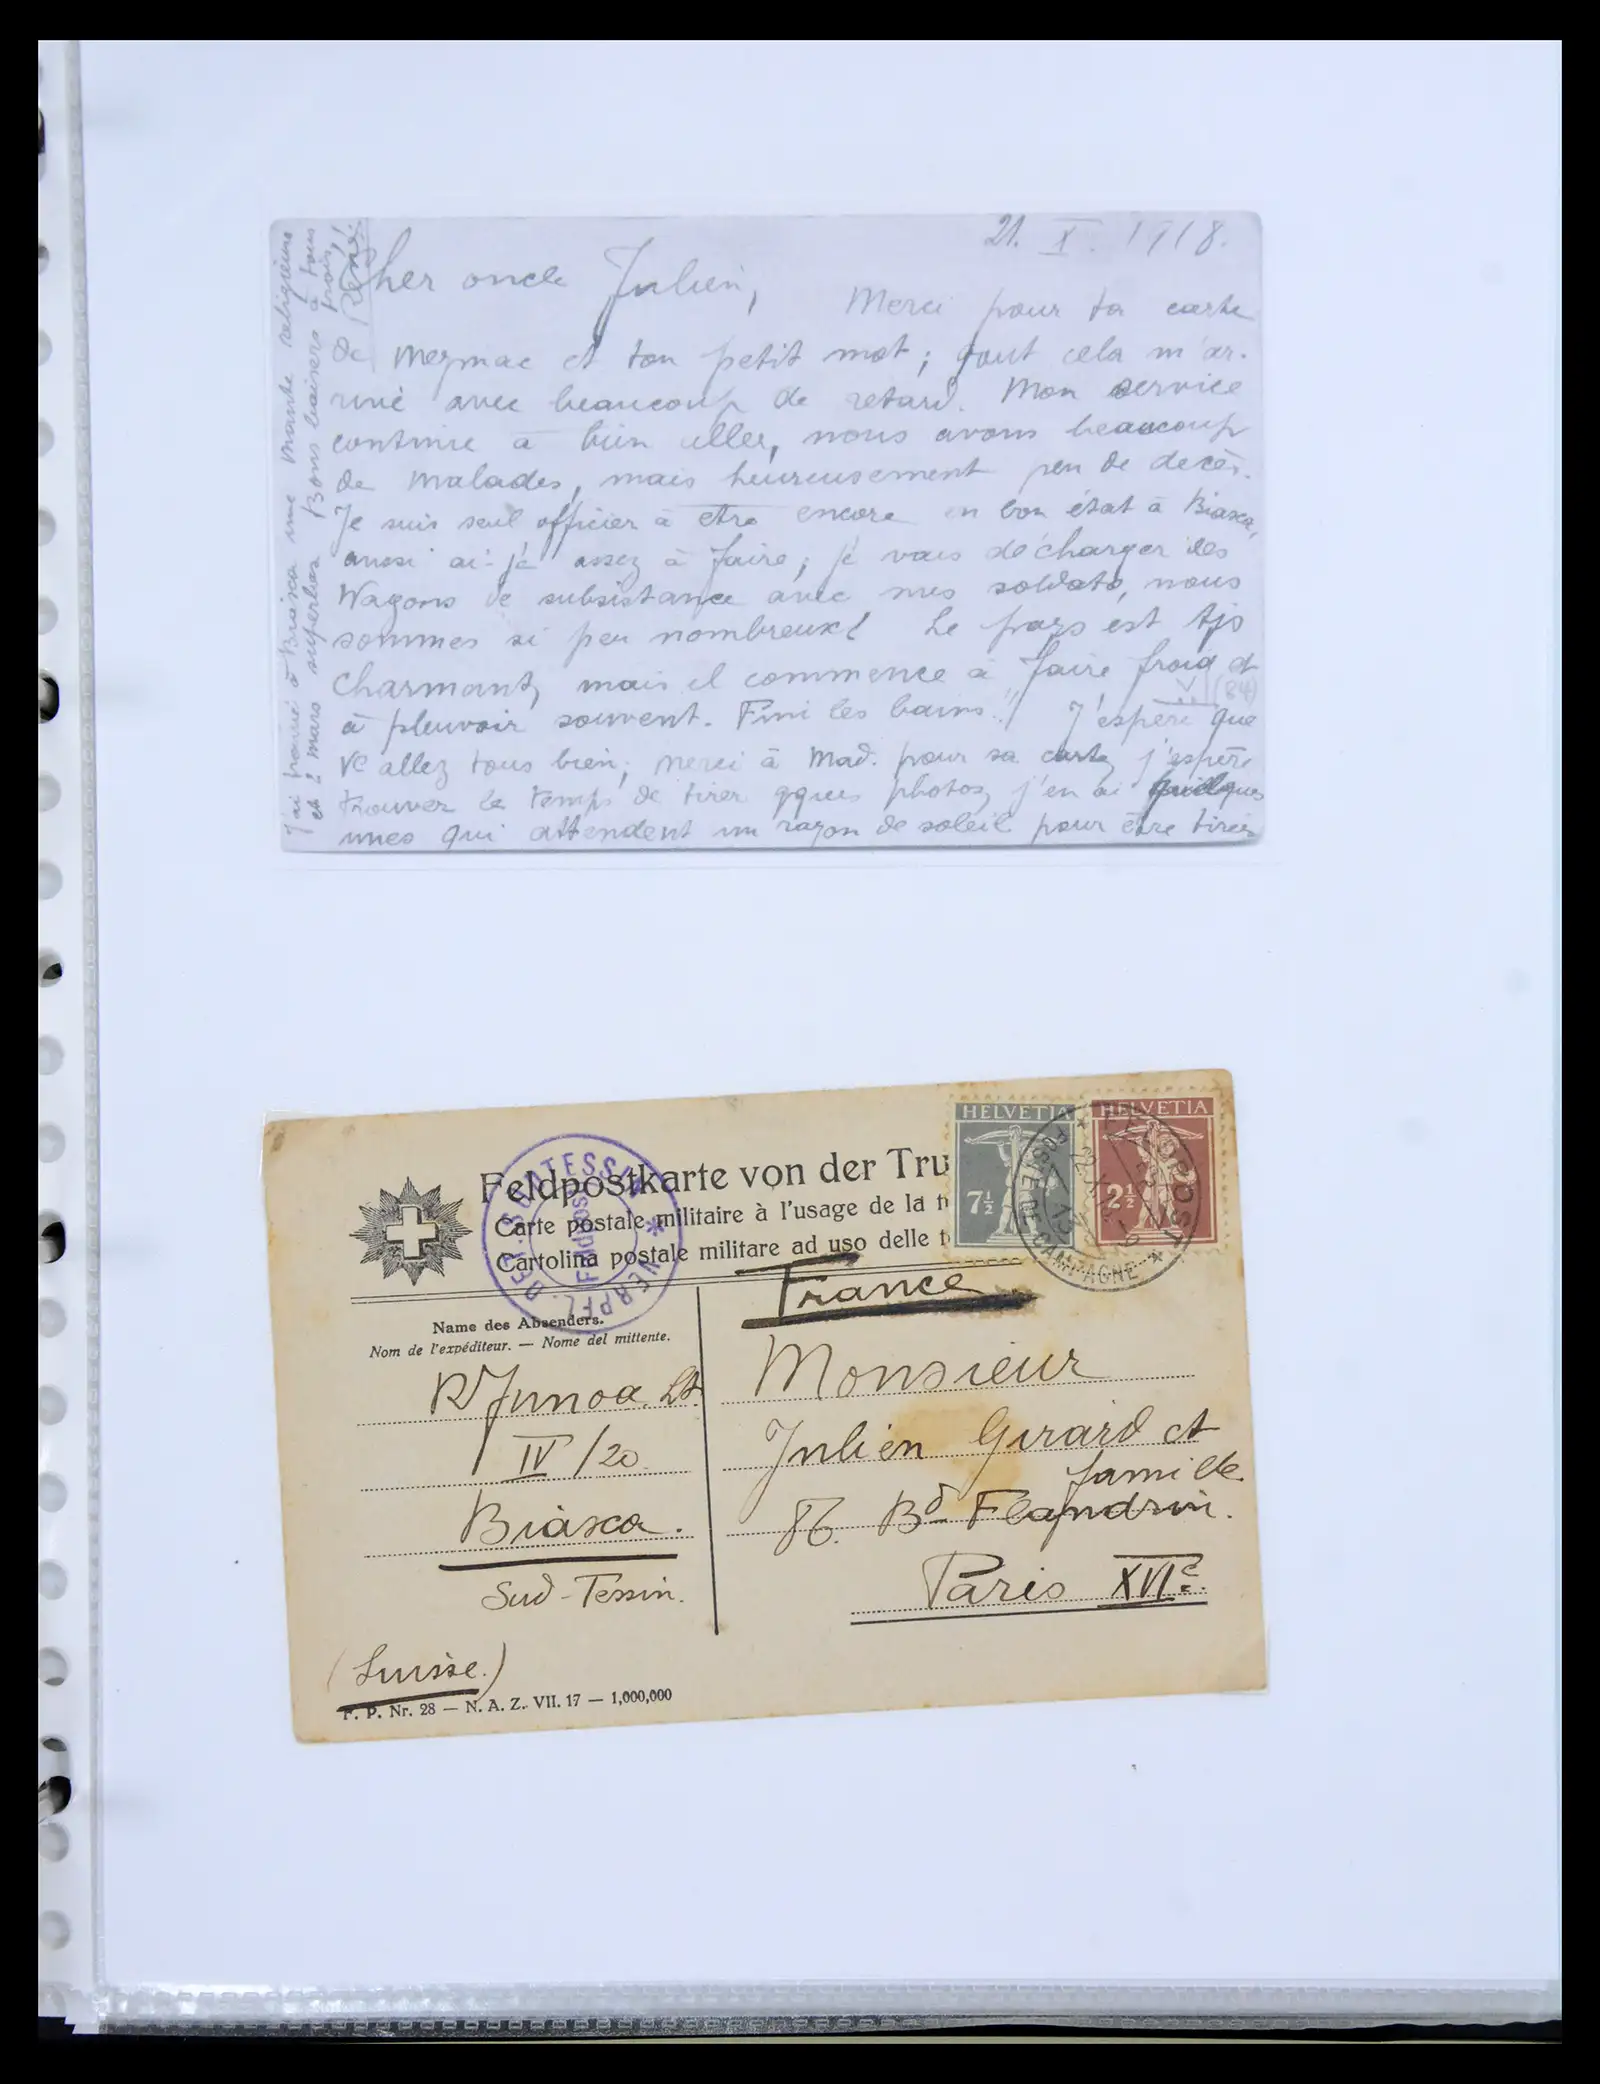 21. X. 1918.
Cher oncle Julien,
Merci pour ta carte
de Meymac et ton petit mot; tout cela m'ar-
rive avec beaucoup de retard. Mon service
continue à bien aller, nous avons beaucoup
de malades, mais heureusement peu de decès.
Je suis seul officier à être encore en bon état à Biasca,
aussi ai-je assez à faire; je vais décharger des
Wagons de subsistance avec mes soldats, nous
sommes si peu nombreux! Le pays est tjs
charmant, mais il commence à faire froid et
(84)
à pleuvoir souvent. Fini les bains..! J'espère que
Vs allez tous bien; merci à Mad. pour sa carte, j'espère
trouver le temps de tirer qques photos, j'en ai quelques
unes qui attendent un rayon de soleil pour être tirées
J'ai trouvé à Biasca une mante religieuse
et 2 mars superbes. Bons baisers à tous
trois!
René.
Feldpostkarte von der Tru
Carte postale militaire à l'usage de la t
Cartolina postale militare ad uso delle t
HELVETIA
7½
HELVETIA
2½
FELDPOST
22.X.18-9
POSTE DE CAMPAGNE
VERPFL. DET. SÜDTESSIN
Feldpost
France
Name des Absenders.
Nom de l'expéditeur. — Nome del mittente.
R Junod. Lt.
IV/20.
Biasca.
Sud-Tessin.
(Suisse.)
Monsieur
Julien Girard et
famille
86. Bd Flandrin.
Paris XVIe.
F. P. Nr. 28 — N. A. Z. VII. 17 — 1,000,000